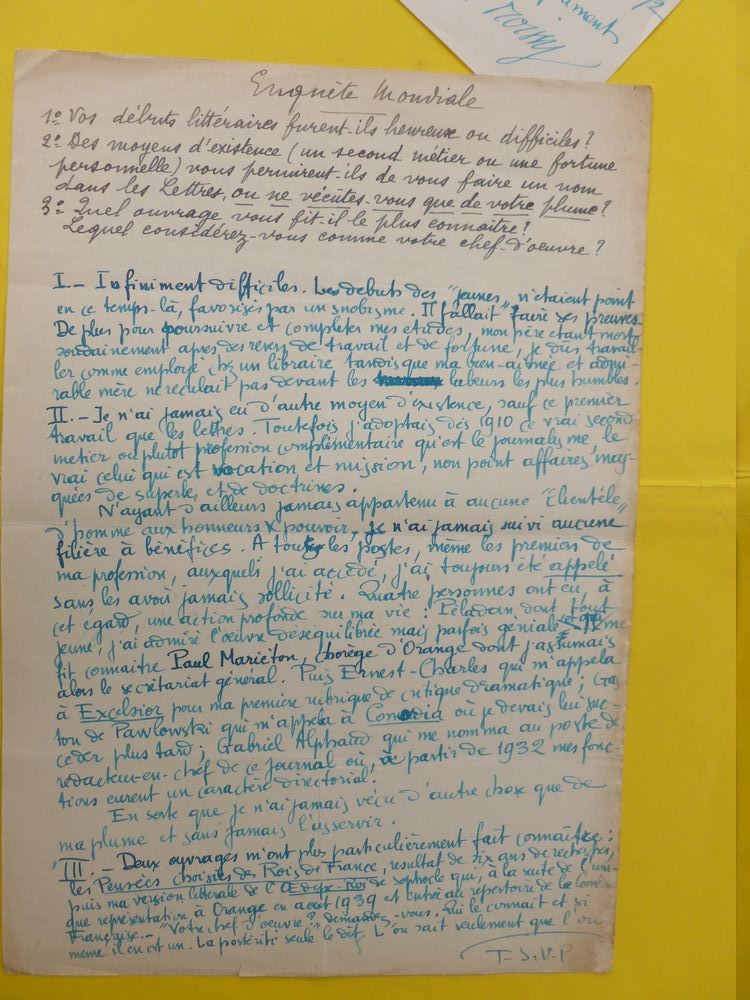 Enquête Mondiale
1º Vos débuts littéraires furent-ils heureux ou difficiles?
2º Des moyens d'existence (un second métier ou une fortune
personnelle) vous permirent-ils de vous faire un nom
dans les Lettres, ou ne vécûtes-vous que de votre plume?
3º Quel ouvrage vous fit-il le plus connaître?
Lequel considérez-vous comme votre chef-d'oeuvre?
I.- Infiniment difficiles. Les débuts des "jeunes" n'étaient point
en ce temps-là, favorisés par un snobisme. Il fallait faire ses preuves.
De plus pour poursuivre et compléter mes études, mon père étant mort
soudainement après des revers de travail et de fortune, je dus travail-
ler comme employé chez un libraire tandis que ma bien-aimée et admi-
rable mère ne reculait pas devant les labeurs les plus humbles.
II.- Je n'ai jamais eu d'autre moyen d'existence, sauf ce premier
travail que les lettres. Toutefois j'adoptais dès 1910 ce vrai second
métier ou plutôt profession complémentaire qu'est le journalisme, le
vrai celui qui est vocation et mission, non point affaires mas-
quées de superbe et de doctrines.
N'ayant d'ailleurs jamais appartenu à aucune "clientèle"
d'homme aux honneurs X pouvoir, je n'ai jamais suivi aucune
filière à bénéfices. A toutes les postes, même les premiers de
ma profession, auxquels j'ai accédé, j'ai toujours été appelé
sans les avoir jamais sollicité. Quatre personnes ont eu, à
cet égard, une action profonde sur ma vie: Péladan, dont tout
jeune, j'ai admiré l'oeuvre déséquilibrée mais parfois géniale et qui me
fit connaître Paul Mariéton, chorège d'Orange dont j'assumais
alors le secrétariat général. Puis Ernest-Charles qui m'appela
à Excelsior pour ma première rubrique de critique dramatique; Gas
ton de Pawlowski qui m'appela à Comoedia où je devais lui suc-
céder plus tard; Gabriel Alphaud qui me nomma au poste de
rédacteur-en-chef de ce journal où, à partir de 1932 mes fonc-
tions eurent un caractère directorial.
En sorte que je n'ai jamais vécu d'autre chose que de
ma plume et sans jamais l'asservir.
III.- Deux ouvrages m'ont plus particulièrement fait connaître:
les Pensées choisies des Rois de France, résultat de six ans de recherches,
puis ma version littérale de l'Oedipe-Roi de Sophocle qui, à la suite de l'uni-
que représentation à Orange en août 1939 est entré au répertoire de la Comédie
Française.- "Votre chef d'oeuvre?" demandez-vous. Qui le connaît et si
même il en est un. La postérité seule le dit. L'on sait seulement que l'on
T.S.V.P